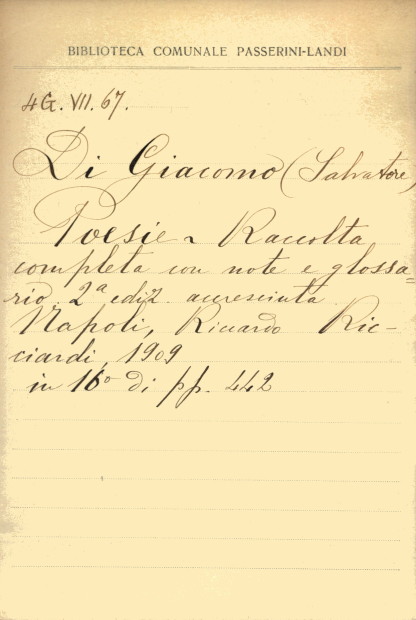 BIBLIOTECA COMUNALE PASSERINI-LANDI
4G. VII. 67.
Di Giacomo (Salvatore)
Poesie ~ Raccolta
completa con note e glossa=
rio. 2ª ediz. accresciuta
Napoli, Riccardo Ric-
ciardi, 1909
in 16º di pp. 442